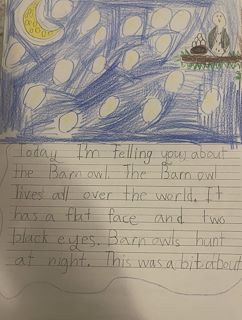 Today I'm telling you about
the Barn owl. The Barn owl
lives all over the world. It
has a flat face and two
black eyes. Barn owls hunt
at night. This was a bit about